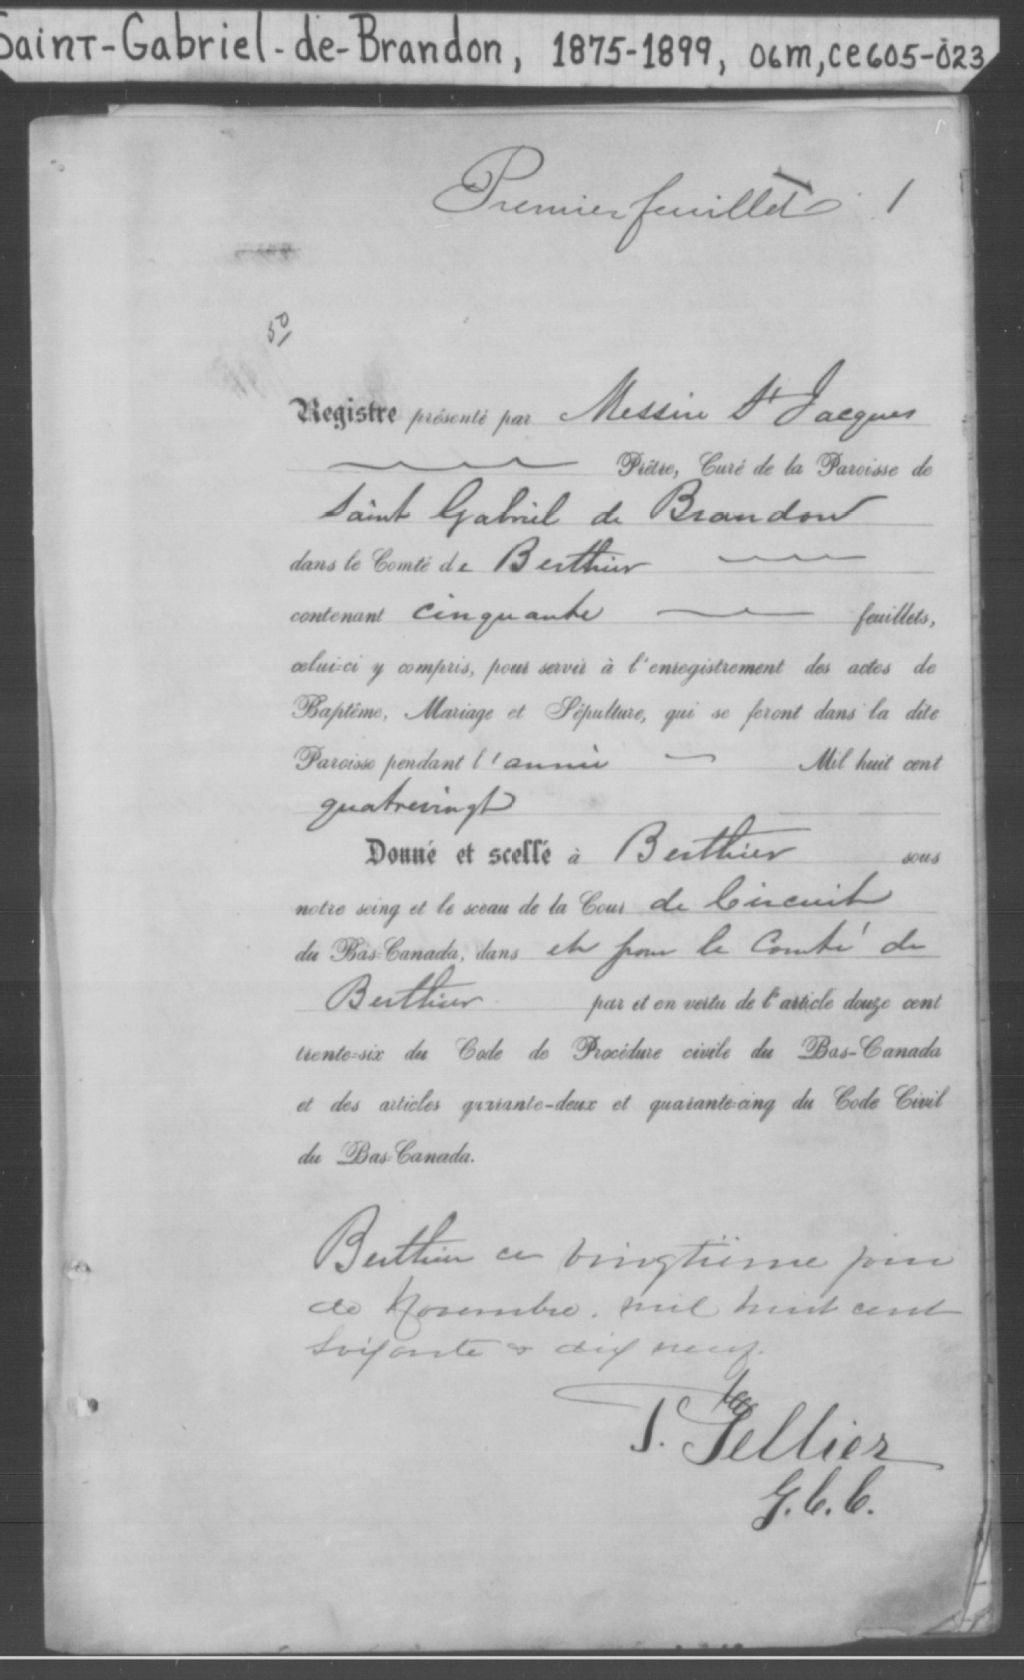 Saint-Gabriel-de-Brandon, 1875-1899, 06m,ce605-023
Premier feuillet 1
50
Registre présenté par Messire St Jacques
Prêtre, Curé de la Paroisse de
Saint Gabriel de Brandon
dans le Comté de Berthier
contenant cinquante feuillets,
celui-ci y compris, pour servir à l'enregistrement des actes de
Baptême, Mariage et Sépulture, qui se feront dans la dite
Paroisse pendant l'année Mil huit cent
quatrevingt
Donné et scellé à Berthier sous
notre seing et le sceau de la Cour de Circuit
du Bas-Canada, dans et pour le Comté de
Berthier par et en vertu de l'article douze cent
trente-six du Code de Procédure civile du Bas-Canada
et des articles quarante-deux et quarante-cinq du Code Civil
du Bas-Canada.
Berthier ce vingtième jour
de Novembre. mil huit cent
soixante & dix neuf.
Tellier
G.C.C.